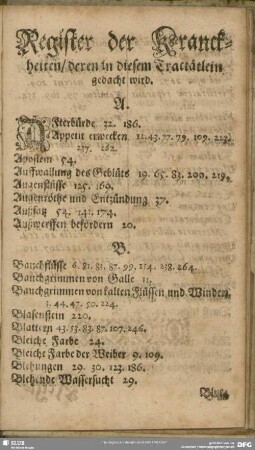 Register der Kranck-
heiten/ deren in diesem Tractätlein
gedacht wird.
A.
Afterbürde 32. 186.
Appetit erwecken 12. 43. 77. 79. 109. 223.
237. 262.
Apostem 54.
Auffwallung des Geblüts 19. 65. 83. 200. 219.
Augenflüsse 125. 169.
Augenröthe und Entzündung 37.
Aussatz 54. 141. 174.
Außwerffen befördern 20.
B.
Bauchflüsse 6. 81. 83. 87. 99. 154. 238. 264.
Bauchgrimmen von Galle 11.
Bauchgrimmen von kalten Flüssen und Winden
3. 44. 47. 50. 224.
Blasenstein 220.
Blattern 43. 53. 83. 87. 107. 246.
Bleiche Farbe 24.
Bleiche Farbe der Weiber 9. 109.
Blehungen 29. 30. 123. 186.
Blehende Wassersucht 29.
SLUB
DFG